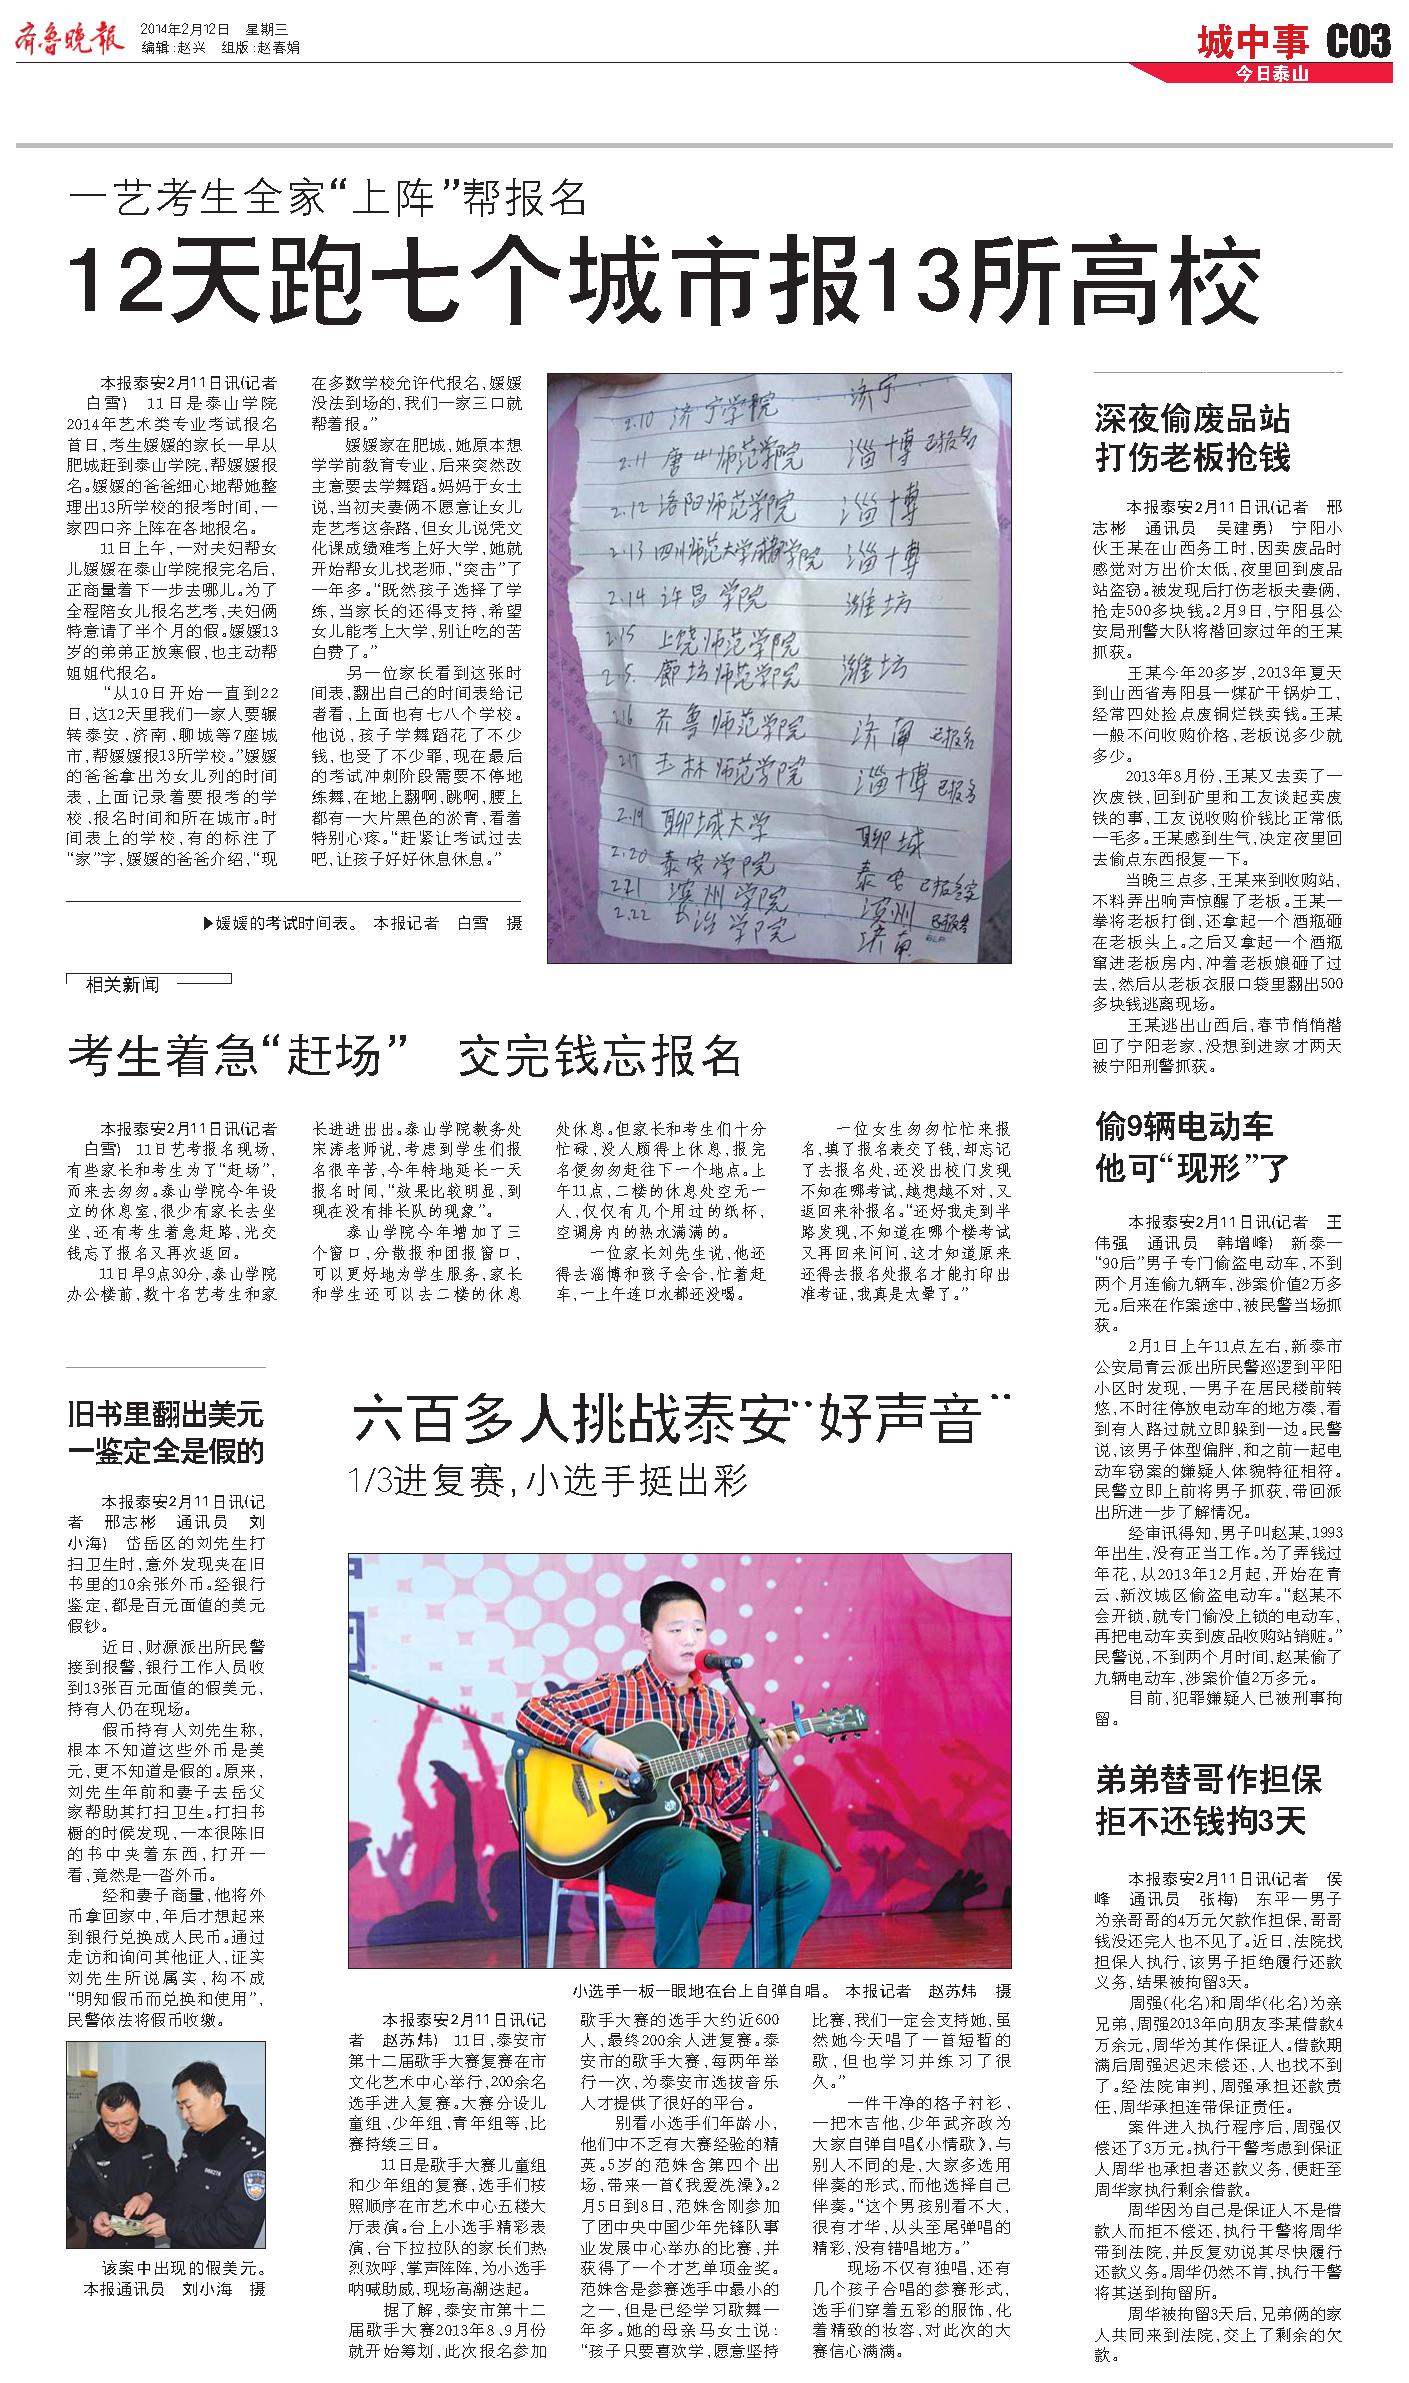 齐鲁晚报
2014年2月12日 星期三
编辑:赵兴 组版:赵春娟
城中事 C03
今日泰山
一艺考生全家“上阵”帮报名
12天跑七个城市报13所高校
本报泰安2月11日讯(记者
白雪) 11日是泰山学院
2014年艺术类专业考试报名
首日,考生媛媛的家长一早从
肥城赶到泰山学院,帮媛媛报
名。媛媛的爸爸细心地帮她整
理出13所学校的报考时间,一
家四口齐上阵在各地报名。
11日上午,一对夫妇帮女
儿媛媛在泰山学院报完名后,
正商量着下一步去哪儿。为了
全程陪女儿报名艺考,夫妇俩
特意请了半个月的假。媛媛13
岁的弟弟正放寒假,也主动帮
姐姐代报名。
“从10日开始一直到22
日,这12天里我们一家人要辗
转泰安、济南、聊城等7座城
市,帮媛媛报13所学校。”媛媛
的爸爸拿出为女儿列的时间
表,上面记录着要报考的学
校、报名时间和所在城市。时
间表上的学校,有的标注了
“家”字,媛媛的爸爸介绍,“现
在多数学校允许代报名,媛媛
没法到场的,我们一家三口就
帮着报。”
媛媛家在肥城,她原本想
学学前教育专业,后来突然改
主意要去学舞蹈。妈妈于女士
说,当初夫妻俩不愿意让女儿
走艺考这条路,但女儿说凭文
化课成绩难考上好大学,她就
开始帮女儿找老师,“突击”了
一年多。“既然孩子选择了学
练,当家长的还得支持,希望
女儿能考上大学,别让吃的苦
白费了。”
另一位家长看到这张时
间表,翻出自己的时间表给记
者看,上面也有七八个学校。
他说,孩子学舞蹈花了不少
钱,也受了不少罪,现在最后
的考试冲刺阶段需要不停地
练舞,在地上翻啊,跳啊,腰上
都有一大片黑色的淤青,看着
特别心疼。“赶紧让考试过去
吧,让孩子好好休息休息。”
▶媛媛的考试时间表。 本报记者 白雪 摄
2.10 济宁学院 济宁
2.11 唐山师范学院 淄博 已报名
2.12 洛阳师范学院 淄博
2.13 四川师范大学成都学院 淄博
2.14 许昌学院 潍坊
2.15 上饶师范学院
2.15. 廊坊师范学院 潍坊
2.16 齐鲁师范学院 济南 已报名
2.17 玉林师范学院 淄博 已报名
2.19 聊城大学 聊城
2.20 泰安学院 泰安 已报名家
2.21 滨州学院 滨州 已报名
2.22 长治学院 济南
相关新闻
考生着急“赶场” 交完钱忘报名
本报泰安2月11日讯(记者
白雪) 11日艺考报名现场,
有些家长和考生为了“赶场”,
而来去匆匆。泰山学院今年设
立的休息室,很少有家长去坐
坐,还有考生着急赶路,光交
钱忘了报名又再次返回。
11日早9点30分,泰山学院
办公楼前,数十名艺考生和家
长进进出出。泰山学院教务处
宋涛老师说,考虑到学生们报
名很辛苦,今年特地延长一天
报名时间,“效果比较明显,到
现在没有排长队的现象”。
泰山学院今年增加了三
个窗口,分散报和团报窗口,
可以更好地为学生服务,家长
和学生还可以去二楼的休息
处休息。但家长和考生们十分
忙碌,没人顾得上休息,报完
名便匆匆赶往下一个地点。上
午11点,二楼的休息处空无一
人,仅仅有几个用过的纸杯,
空调房内的热水满满的。
一位家长刘先生说,他还
得去淄博和孩子会合,忙着赶
车,一上午连口水都还没喝。
一位女生匆匆忙忙来报
名,填了报名表交了钱,却忘记
了去报名处,还没出校门发现
不知在哪考试,越想越不对,又
返回来补报名。“还好我走到半
路发现,不知道在哪个楼考试
又再回来问问,这才知道原来
还得去报名处报名才能打印出
准考证,我真是太晕了。”
旧书里翻出美元
一鉴定全是假的
本报泰安2月11日讯(记
者 邢志彬 通讯员 刘
小海) 岱岳区的刘先生打
扫卫生时,意外发现夹在旧
书里的10余张外币。经银行
鉴定,都是百元面值的美元
假钞。
近日,财源派出所民警
接到报警,银行工作人员收
到13张百元面值的假美元,
持有人仍在现场。
假币持有人刘先生称,
根本不知道这些外币是美
元,更不知道是假的。原来,
刘先生年前和妻子去岳父
家帮助其打扫卫生。打扫书
橱的时候发现,一本很陈旧
的书中夹着东西,打开一
看,竟然是一沓外币。
经和妻子商量,他将外
币拿回家中,年后才想起来
到银行兑换成人民币。通过
走访和询问其他证人,证实
刘先生所说属实,构不成
“明知假币而兑换和使用”,
民警依法将假币收缴。
该案中出现的假美元。
本报通讯员 刘小海 摄
六百多人挑战泰安“好声音”
1/3进复赛,小选手挺出彩
小选手一板一眼地在台上自弹自唱。 本报记者 赵苏炜 摄
本报泰安2月11日讯(记
者 赵苏炜) 11日,泰安市
第十二届歌手大赛复赛在市
文化艺术中心举行,200余名
选手进入复赛。大赛分设儿
童组、少年组、青年组等,比
赛持续三日。
11日是歌手大赛儿童组
和少年组的复赛,选手们按
照顺序在市艺术中心五楼大
厅表演。台上小选手精彩表
演,台下拉拉队的家长们热
烈欢呼,掌声阵阵,为小选手
呐喊助威,现场高潮迭起。
据了解,泰安市第十二
届歌手大赛2013年8、9月份
就开始筹划,此次报名参加
歌手大赛的选手大约近600
人,最终200余人进复赛。泰
安市的歌手大赛,每两年举
行一次,为泰安市选拔音乐
人才提供了很好的平台。
别看小选手们年龄小,
他们中不乏有大赛经验的精
英。5岁的范姝含第四个出
场,带来一首《我爱洗澡》。2
月5日到8日,范姝含刚参加
了团中央中国少年先锋队事
业发展中心举办的比赛,并
获得了一个才艺单项金奖。
范姝含是参赛选手中最小的
之一,但是已经学习歌舞一
年多。她的母亲马女士说:
“孩子只要喜欢学,愿意坚持
比赛,我们一定会支持她,虽
然她今天唱了一首短暂的
歌,但也学习并练习了很
久。”
一件干净的格子衬衫、
一把木吉他,少年武齐政为
大家自弹自唱《小情歌》,与
别人不同的是,大家多选用
伴奏的形式,而他选择自己
伴奏。“这个男孩别看不大,
很有才华,从头至尾弹唱的
精彩,没有错唱地方。”
现场不仅有独唱,还有
几个孩子合唱的参赛形式,
选手们穿着五彩的服饰,化
着精致的妆容,对此次的大
赛信心满满。
深夜偷废品站
打伤老板抢钱
本报泰安2月11日讯(记者 邢
志彬 通讯员 吴建勇) 宁阳小
伙王某在山西务工时,因卖废品时
感觉对方出价太低,夜里回到废品
站盗窃。被发现后打伤老板夫妻俩,
抢走500多块钱。2月9日,宁阳县公
安局刑警大队将潜回家过年的王某
抓获。
王某今年20多岁,2013年夏天
到山西省寿阳县一煤矿干锅炉工,
经常四处捡点废铜烂铁卖钱。王某
一般不问收购价格,老板说多少就
多少。
2013年8月份,王某又去卖了一
次废铁,回到矿里和工友谈起卖废
铁的事,工友说收购价钱比正常低
一毛多。王某感到生气,决定夜里回
去偷点东西报复一下。
当晚三点多,王某来到收购站,
不料弄出响声惊醒了老板。王某一
拳将老板打倒,还拿起一个酒瓶砸
在老板头上。之后又拿起一个酒瓶
窜进老板房内,冲着老板娘砸了过
去,然后从老板衣服口袋里翻出500
多块钱逃离现场。
王某逃出山西后,春节悄悄潜
回了宁阳老家,没想到进家才两天
被宁阳刑警抓获。
偷9辆电动车
他可“现形”了
本报泰安2月11日讯(记者 王
伟强 通讯员 韩增峰) 新泰一
“90后”男子专门偷盗电动车,不到
两个月连偷九辆车,涉案价值2万多
元。后来在作案途中,被民警当场抓
获。
2月1日上午11点左右,新泰市
公安局青云派出所民警巡逻到平阳
小区时发现,一男子在居民楼前转
悠,不时往停放电动车的地方凑,看
到有人路过就立即躲到一边。民警
说,该男子体型偏胖,和之前一起电
动车窃案的嫌疑人体貌特征相符。
民警立即上前将男子抓获,带回派
出所进一步了解情况。
经审讯得知,男子叫赵某,1993
年出生,没有正当工作。为了弄钱过
年花,从2013年12月起,开始在青
云、新汶城区偷盗电动车。“赵某不
会开锁,就专门偷没上锁的电动车,
再把电动车卖到废品收购站销赃。”
民警说,不到两个月时间,赵某偷了
九辆电动车,涉案价值2万多元。
目前,犯罪嫌疑人已被刑事拘
留。
弟弟替哥作担保
拒不还钱拘3天
本报泰安2月11日讯(记者 侯
峰 通讯员 张梅) 东平一男子
为亲哥哥的4万元欠款作担保,哥哥
钱没还完人也不见了。近日,法院找
担保人执行,该男子拒绝履行还款
义务,结果被拘留3天。
周强(化名)和周华(化名)为亲
兄弟,周强2013年向朋友李某借款4
万余元,周华为其作保证人。借款期
满后周强迟迟未偿还,人也找不到
了。经法院审判,周强承担还款责
任,周华承担连带保证责任。
案件进入执行程序后,周强仅
偿还了3万元。执行干警考虑到保证
人周华也承担者还款义务,便赶至
周华家执行剩余借款。
周华因为自己是保证人不是借
款人而拒不偿还,执行干警将周华
带到法院,并反复劝说其尽快履行
还款义务。周华仍然不肯,执行干警
将其送到拘留所。
周华被拘留3天后,兄弟俩的家
人共同来到法院,交上了剩余的欠
款。